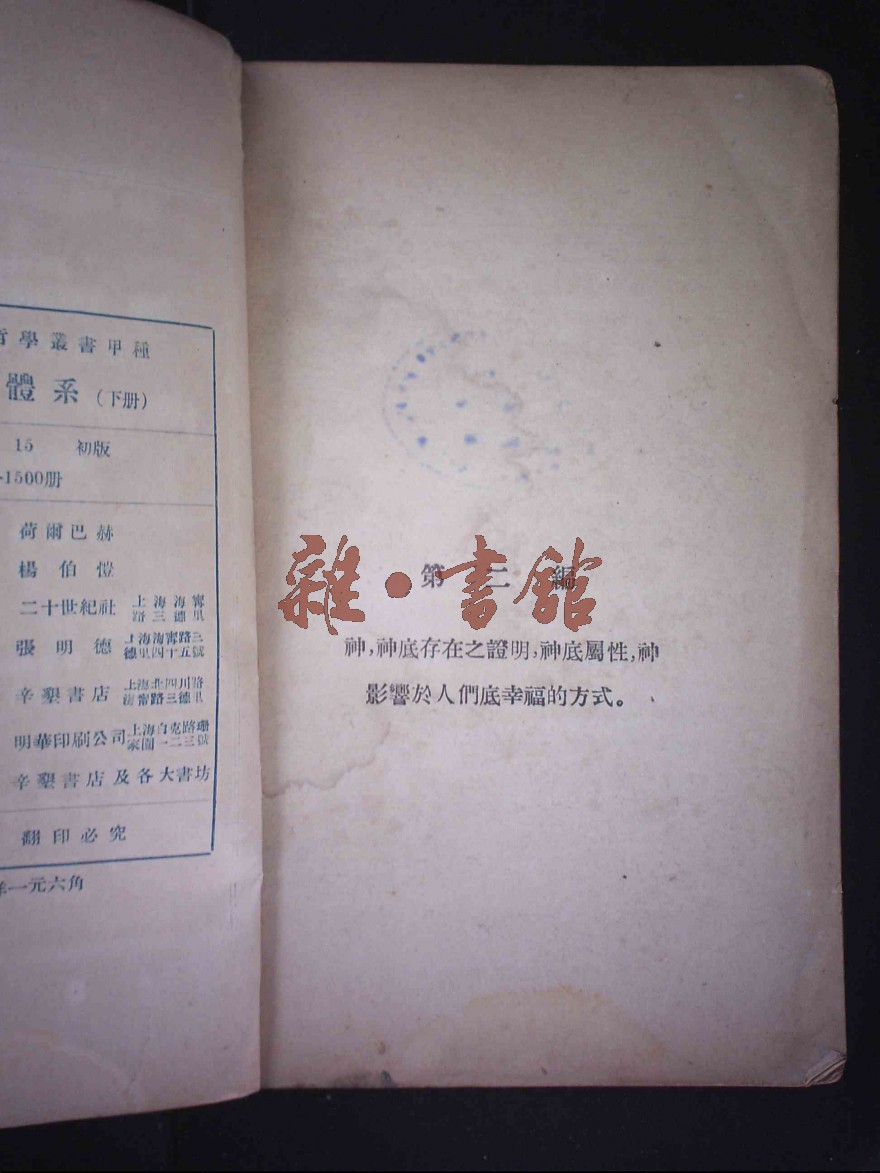 哲學叢書甲種
體系(下册)
15 初版
-1500册
荷爾巴赫
楊伯愷
二十世紀社 上海海甯路三德里
張明德 上海海甯路三德里四十五號
辛墾書店 上海北四川路海甯路三德里
明華印刷公司 上海白克路珊家園一二三號
辛墾書店及各大書坊
翻印必究
洋一元六角
第二編
雜·書館
神,神底存在之證明,神底屬性,神
影響於人們底幸福的方式。